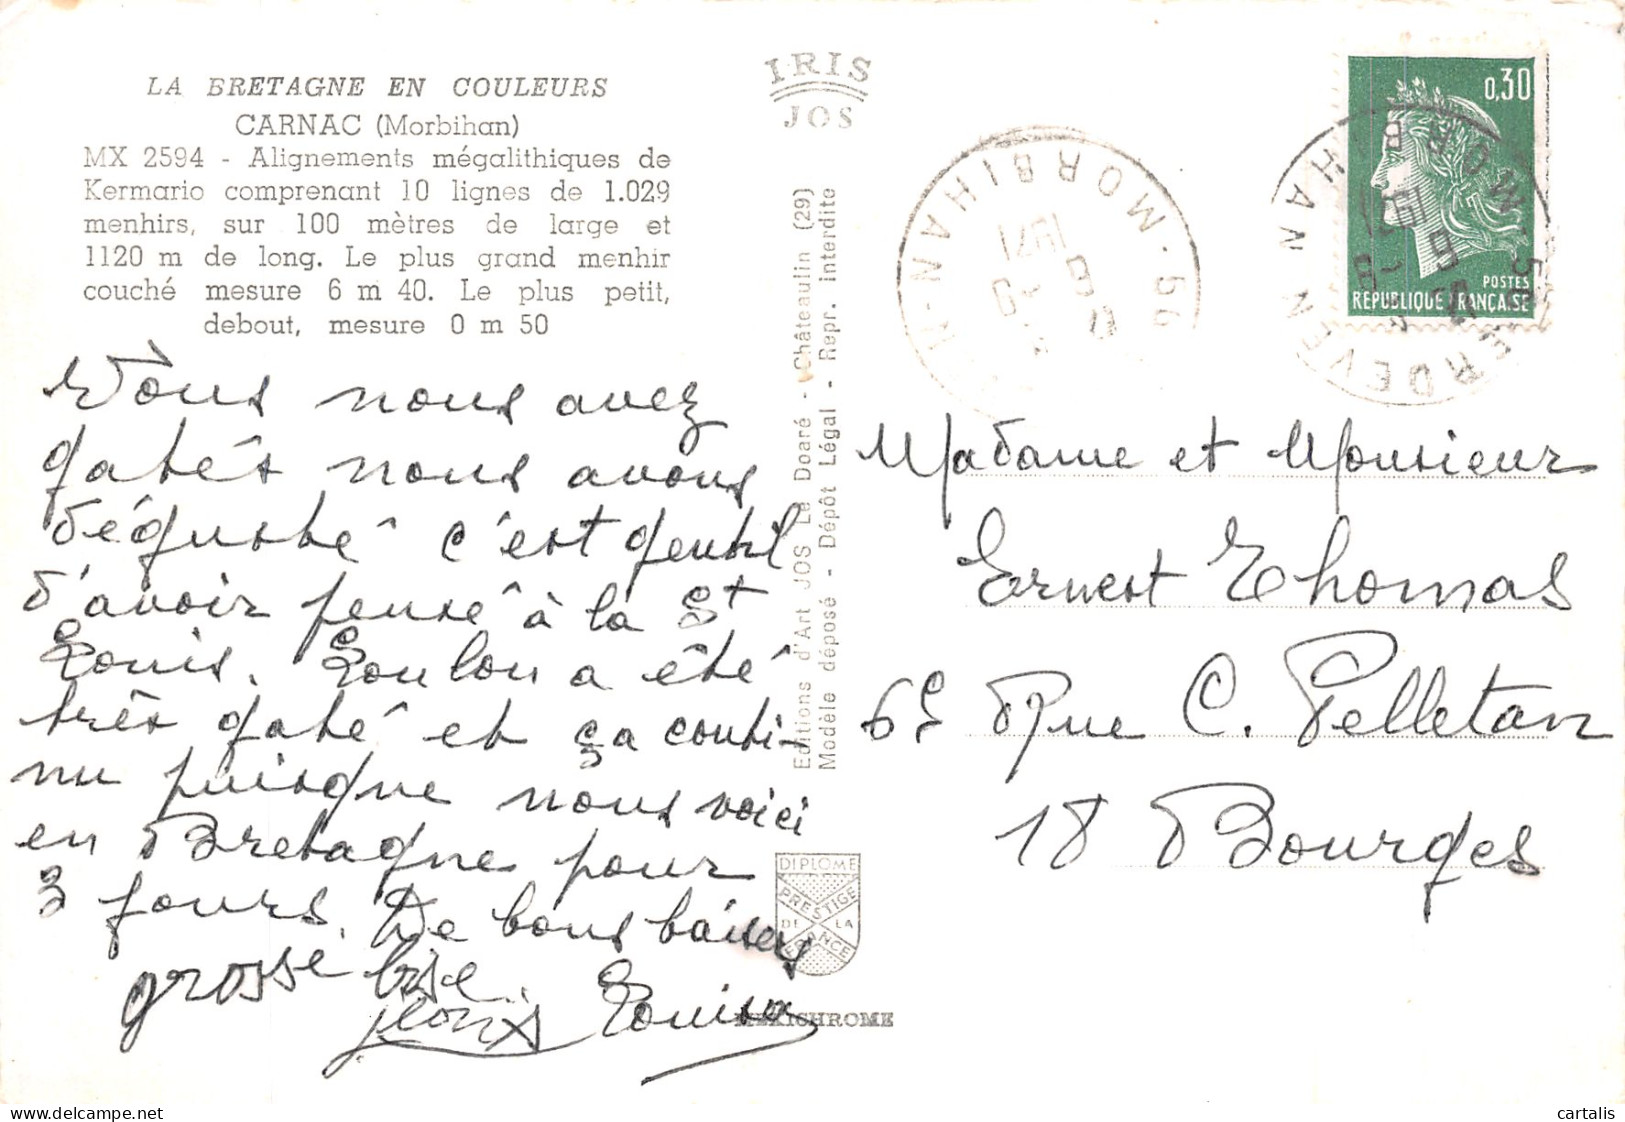 LA BRETAGNE EN COULEURS
CARNAC (Morbihan)
MX 2594 - Alignements mégalithiques de
Kermario comprenant 10 lignes de 1.029
menhirs, sur 100 mètres de large et
1120 m de long. Le plus grand menhir
couché mesure 6 m 40. Le plus petit,
debout, mesure 0 m 50
Vous nous avez
gatés nous avons
dégusté c'est gentil
d'avoir pensé à la St
Louis. Loulou a été
très gaté et ça conti-
nu puisque nous voici
en Bretagne pour
3 jours. De bons baisers
grosse bise
Louise
IRIS
JOS
Editions d'Art JOS Le Doaré - Châteaulin (29)
Modèle déposé - Dépôt Légal - Repr. interdite
DIPLOME
PRESTIGE
DE LA
FRANCE
MEXICHROME
56 MORBIHAN
1971
0,30
POSTES
REPUBLIQUE FRANÇAISE
ERDEVEN
56 MORBIHAN
1971
Madame et Monsieur
Ernest Thomas
65 Rue C. Pelletan
18 Bourges
cartalis